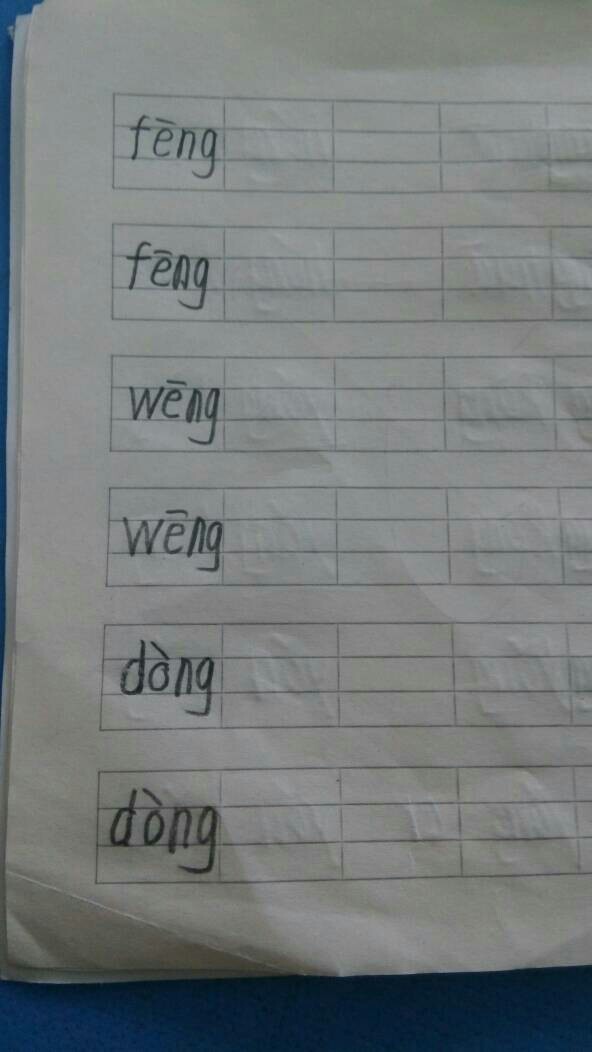 fēng
fēng
wēng
wēng
dòng
dòng